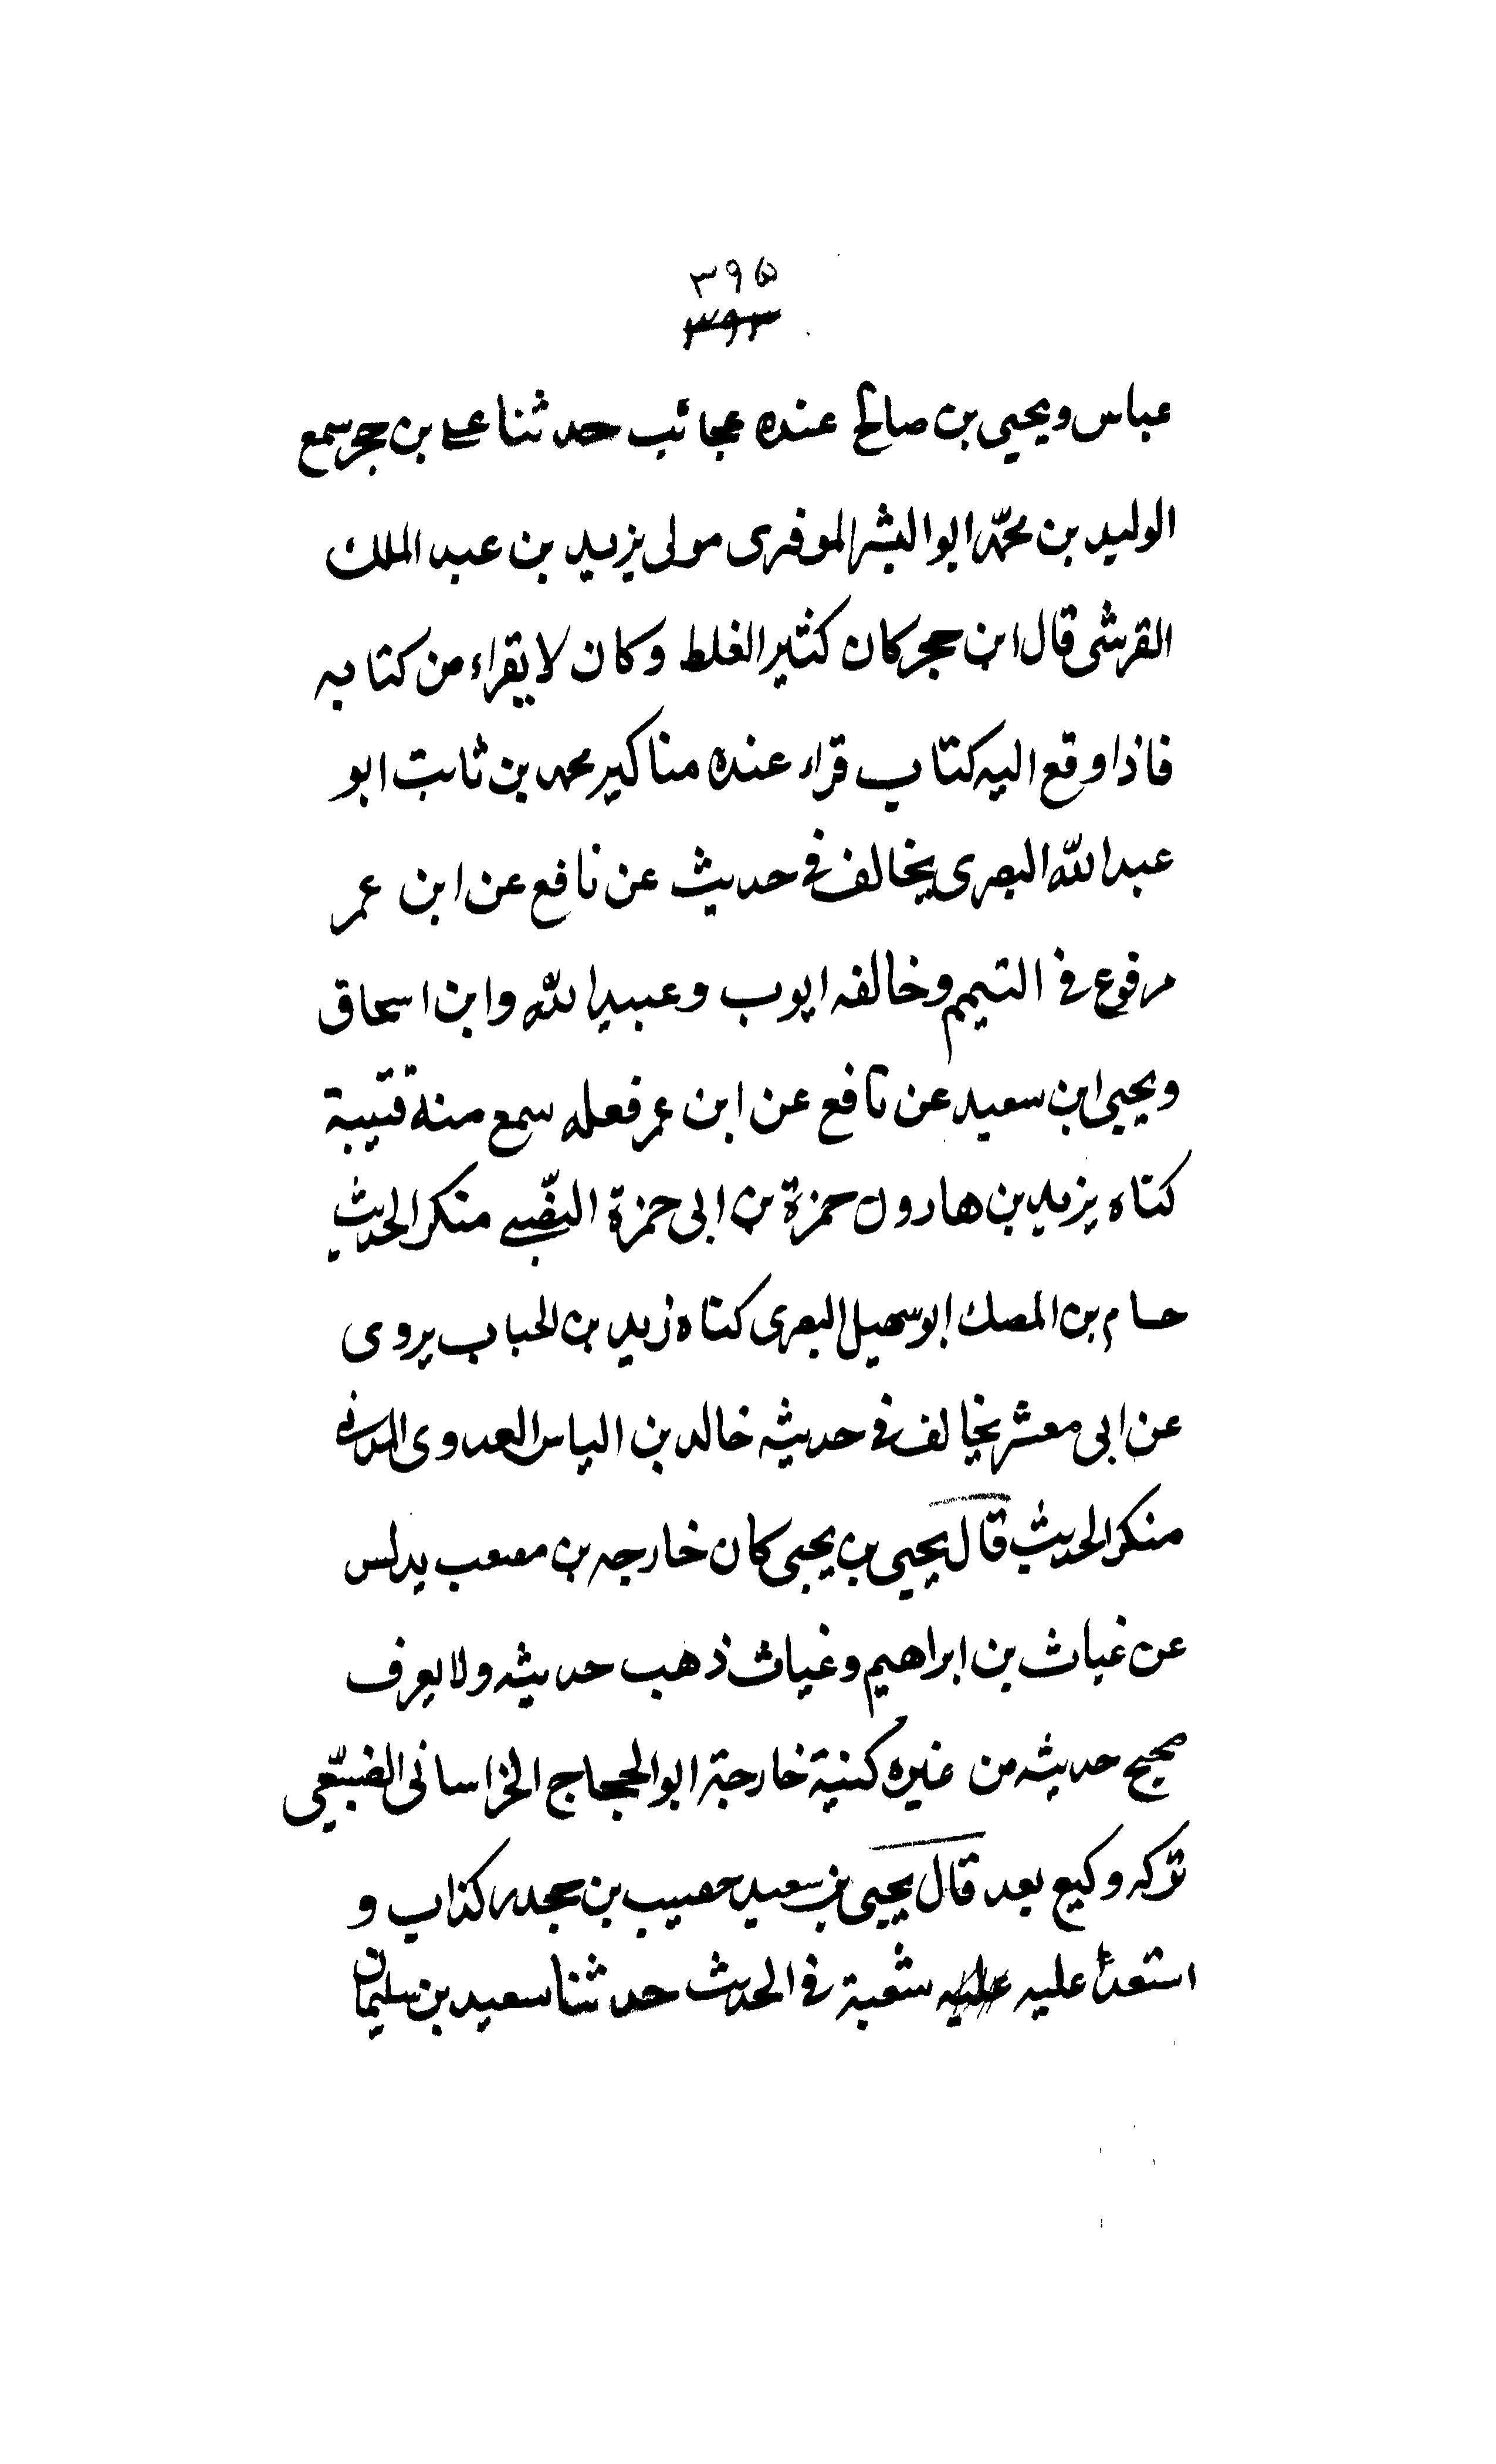 ٣٩٥
٣٩٣
عباس ويحيى بن صالح عنده عجائب حدثنا على بن حجر سمع
الوليد بن محمّد ابو البشر الموقرى مولى يزيد بن عبد الملك
القرشى قال ابن حجر كان كثير الغلط وكان لا يقراء من كتابه
فاذا وقع اليه كتاب قراء عنده مناكير محمد بن ثابت ابو
عبد الله البصرى يخالف فى حديث عن نافع عن ابن عمر
مرفوع فى التيمم وخالفه ايوب وعبيد الله وابن اسحاق
ويحيى ابن سعيد عن نافع عن ابن عمر فعله سمع منه قتيبة
كناه يزيد بن هارون حمزة بن ابى حمزة النصّيبى منكر الحديث
حسام بن المصك ابو سهيل البصرى كناه زيد بن الحباب يروى
عن ابى معشر يخالف فى حديثه خالد بن الياس العدوى المدنى
منكر الحديث قال يحيى بن يحيى كان خارجه بن مصعب يدلس
عن غياث بن ابراهيم وغياث ذهب حديثه ولا يعرف
صحيح حديثه من غيره كنية خارجة ابو الحجاج الخراسانى الضبيّعى
تركه وكيع بعد قال يحيى بن سعيد حصيب بن جحدر كذاب و
استعدأ عليه شعبة فى الحديث حدثنا سعيد بن سليمان